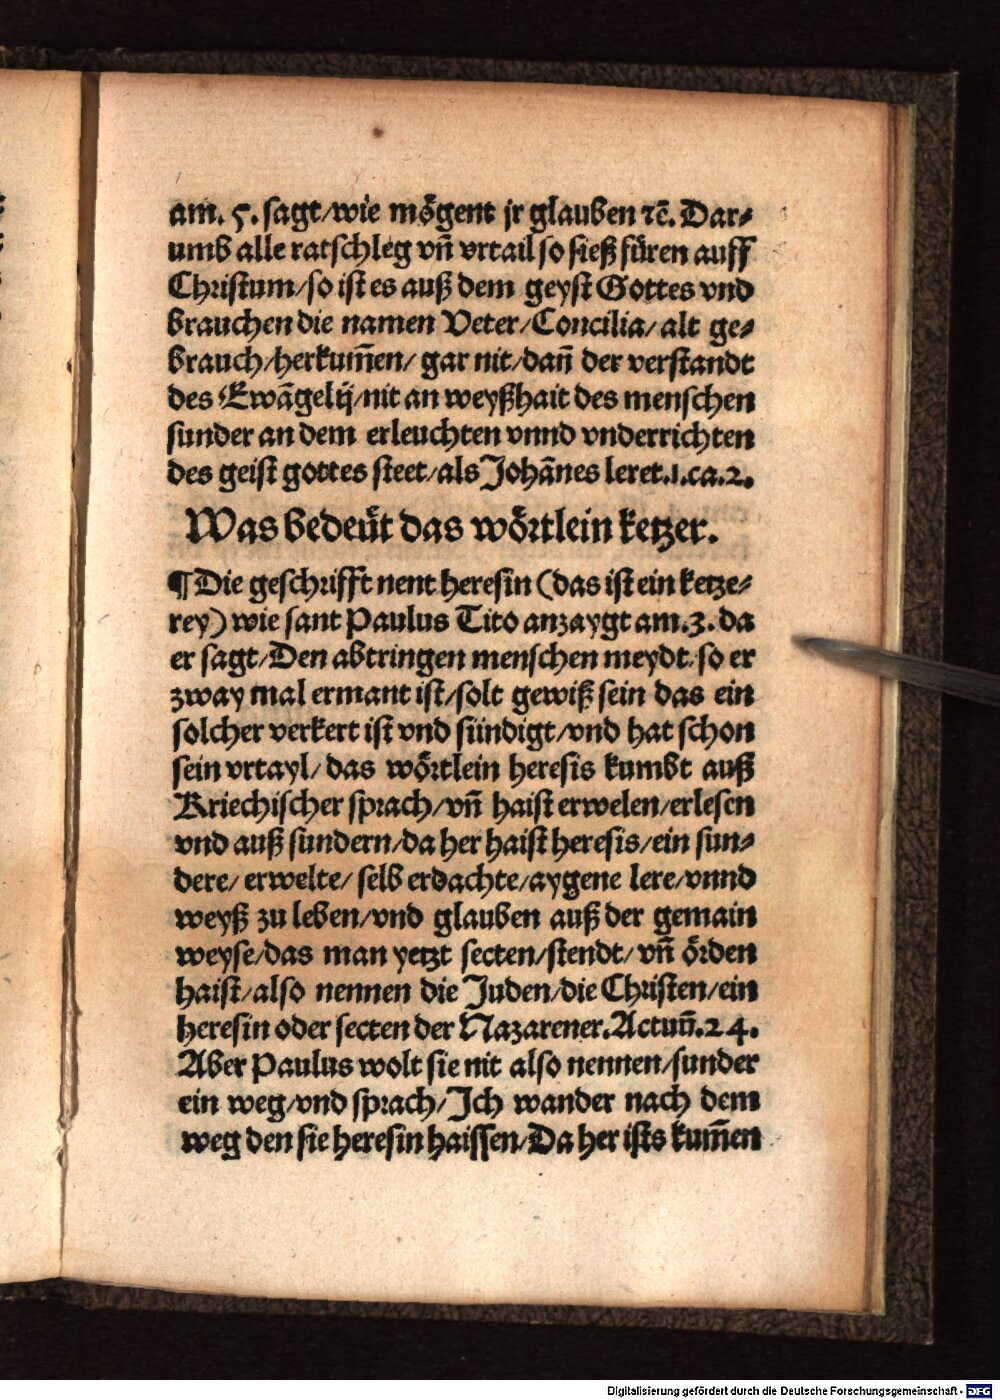 am. 5. sagt/wie mögent jr glauben ⁊c̄. Dar⸗
umb alle ratschleg vn̄ vrtail so sieß füren auff
Christum/so ist es auß dem geyst Gottes vnd
brauchen die namen Veter/Concilia/alt ge⸗
brauch/herkum̄en/ gar nit/dan̄ der verstandt
des Ewāgelij/nit an weyßhait des menschen
sunder an dem erleuchten vnnd vnderrichten
des geist gottes steet/als Johānes leret.1.ca.2.
Was bedeüt das wörtlein ketzer.
¶Die geschrifft nent heresin (das ist ein ketze⸗
rey) wie sant Paulus Tito anzaygt am.3. da
er sagt/Den abtringen menschen meydt/so er
zway mal ermant ist/solt gewiß sein das ein
solcher verkert ist vnd sündigt/vnd hat schon
sein vrtayl/ das wörtlein heresis kumbt auß
Kriechischer sprach/vn̄ haist erwelen/erlesen
vnd auß sundern/da her haist heresis/ein sun⸗
dere/ erwelte/ selb erdachte/aygene lere/vnnd
weyß zu leben/vnd glauben auß der gemain
weyse/das man yetzt secten/stendt/ vn̄ örden
haist/also nennen die Juden/die Christen/ein
heresin oder secten der Nazarener.Actuū.24.
Aber Paulus wolt sie nit also nennen/sunder
ein weg/vnd sprach/Ich wander nach dem
weg den sie heresin haissen/Da her ists kum̄en
Digitalisierung gefördert durch die Deutsche Forschungsgemeinschaft - DFG